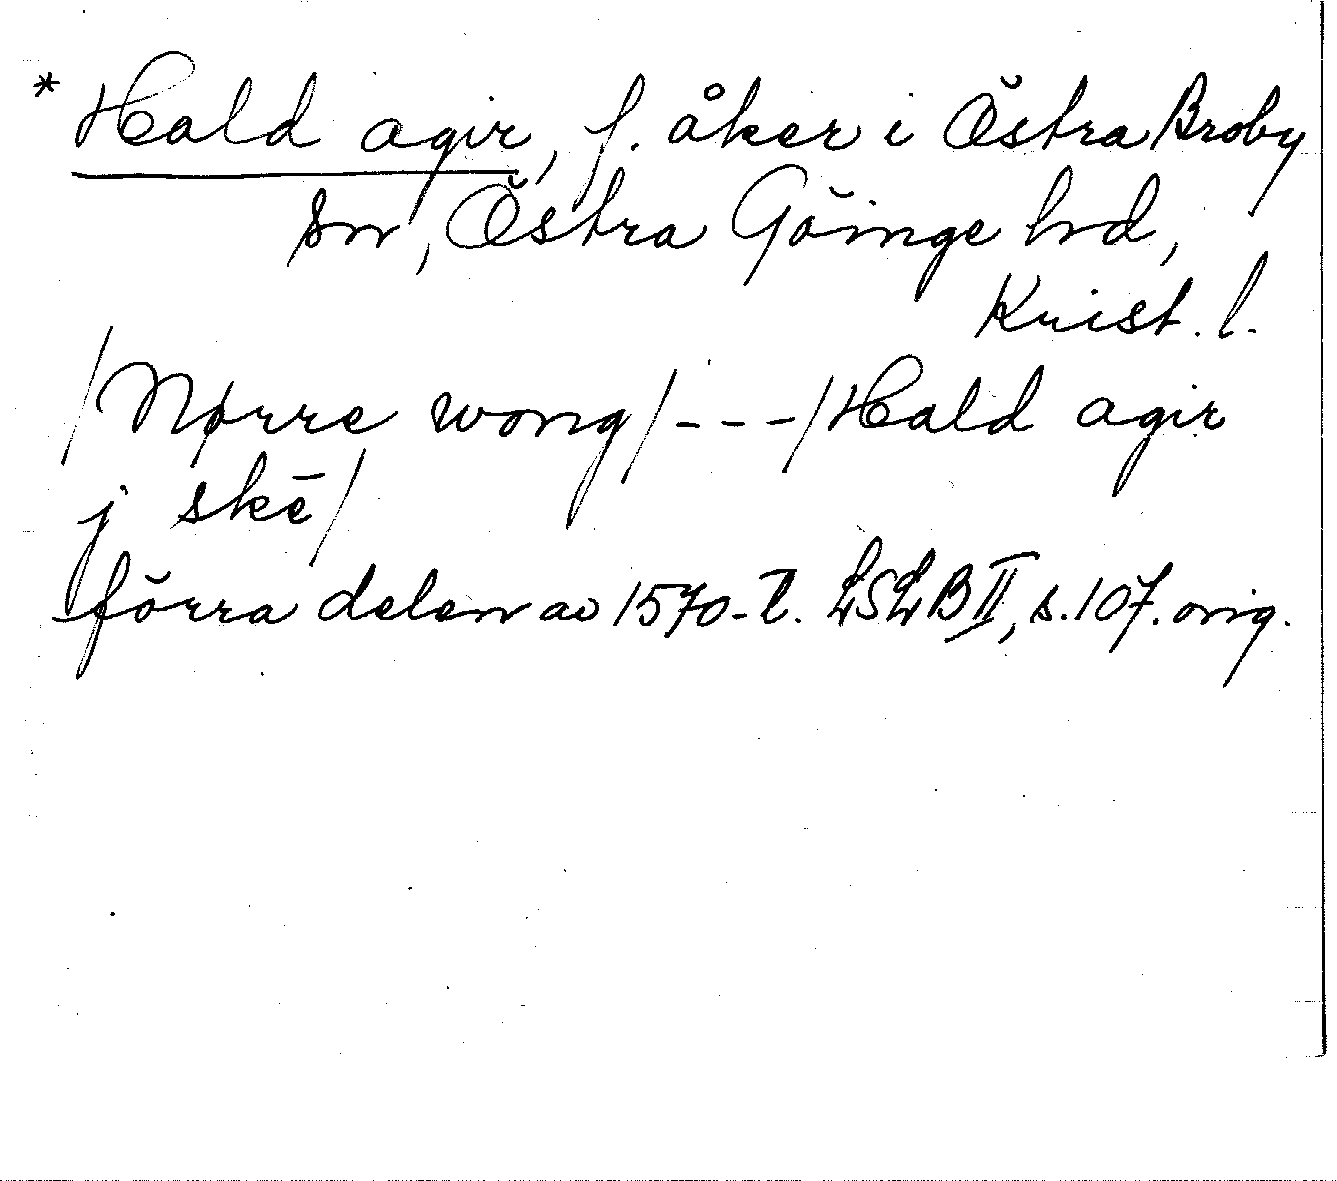 * Hald agir, f. åker i Östra Broby
sn, Östra Göinge hd,
Krist. l.
/Nørre wong/---/Hald agir
j skē/
förra delen av 1570-t. LSLB II, s. 107. orig.